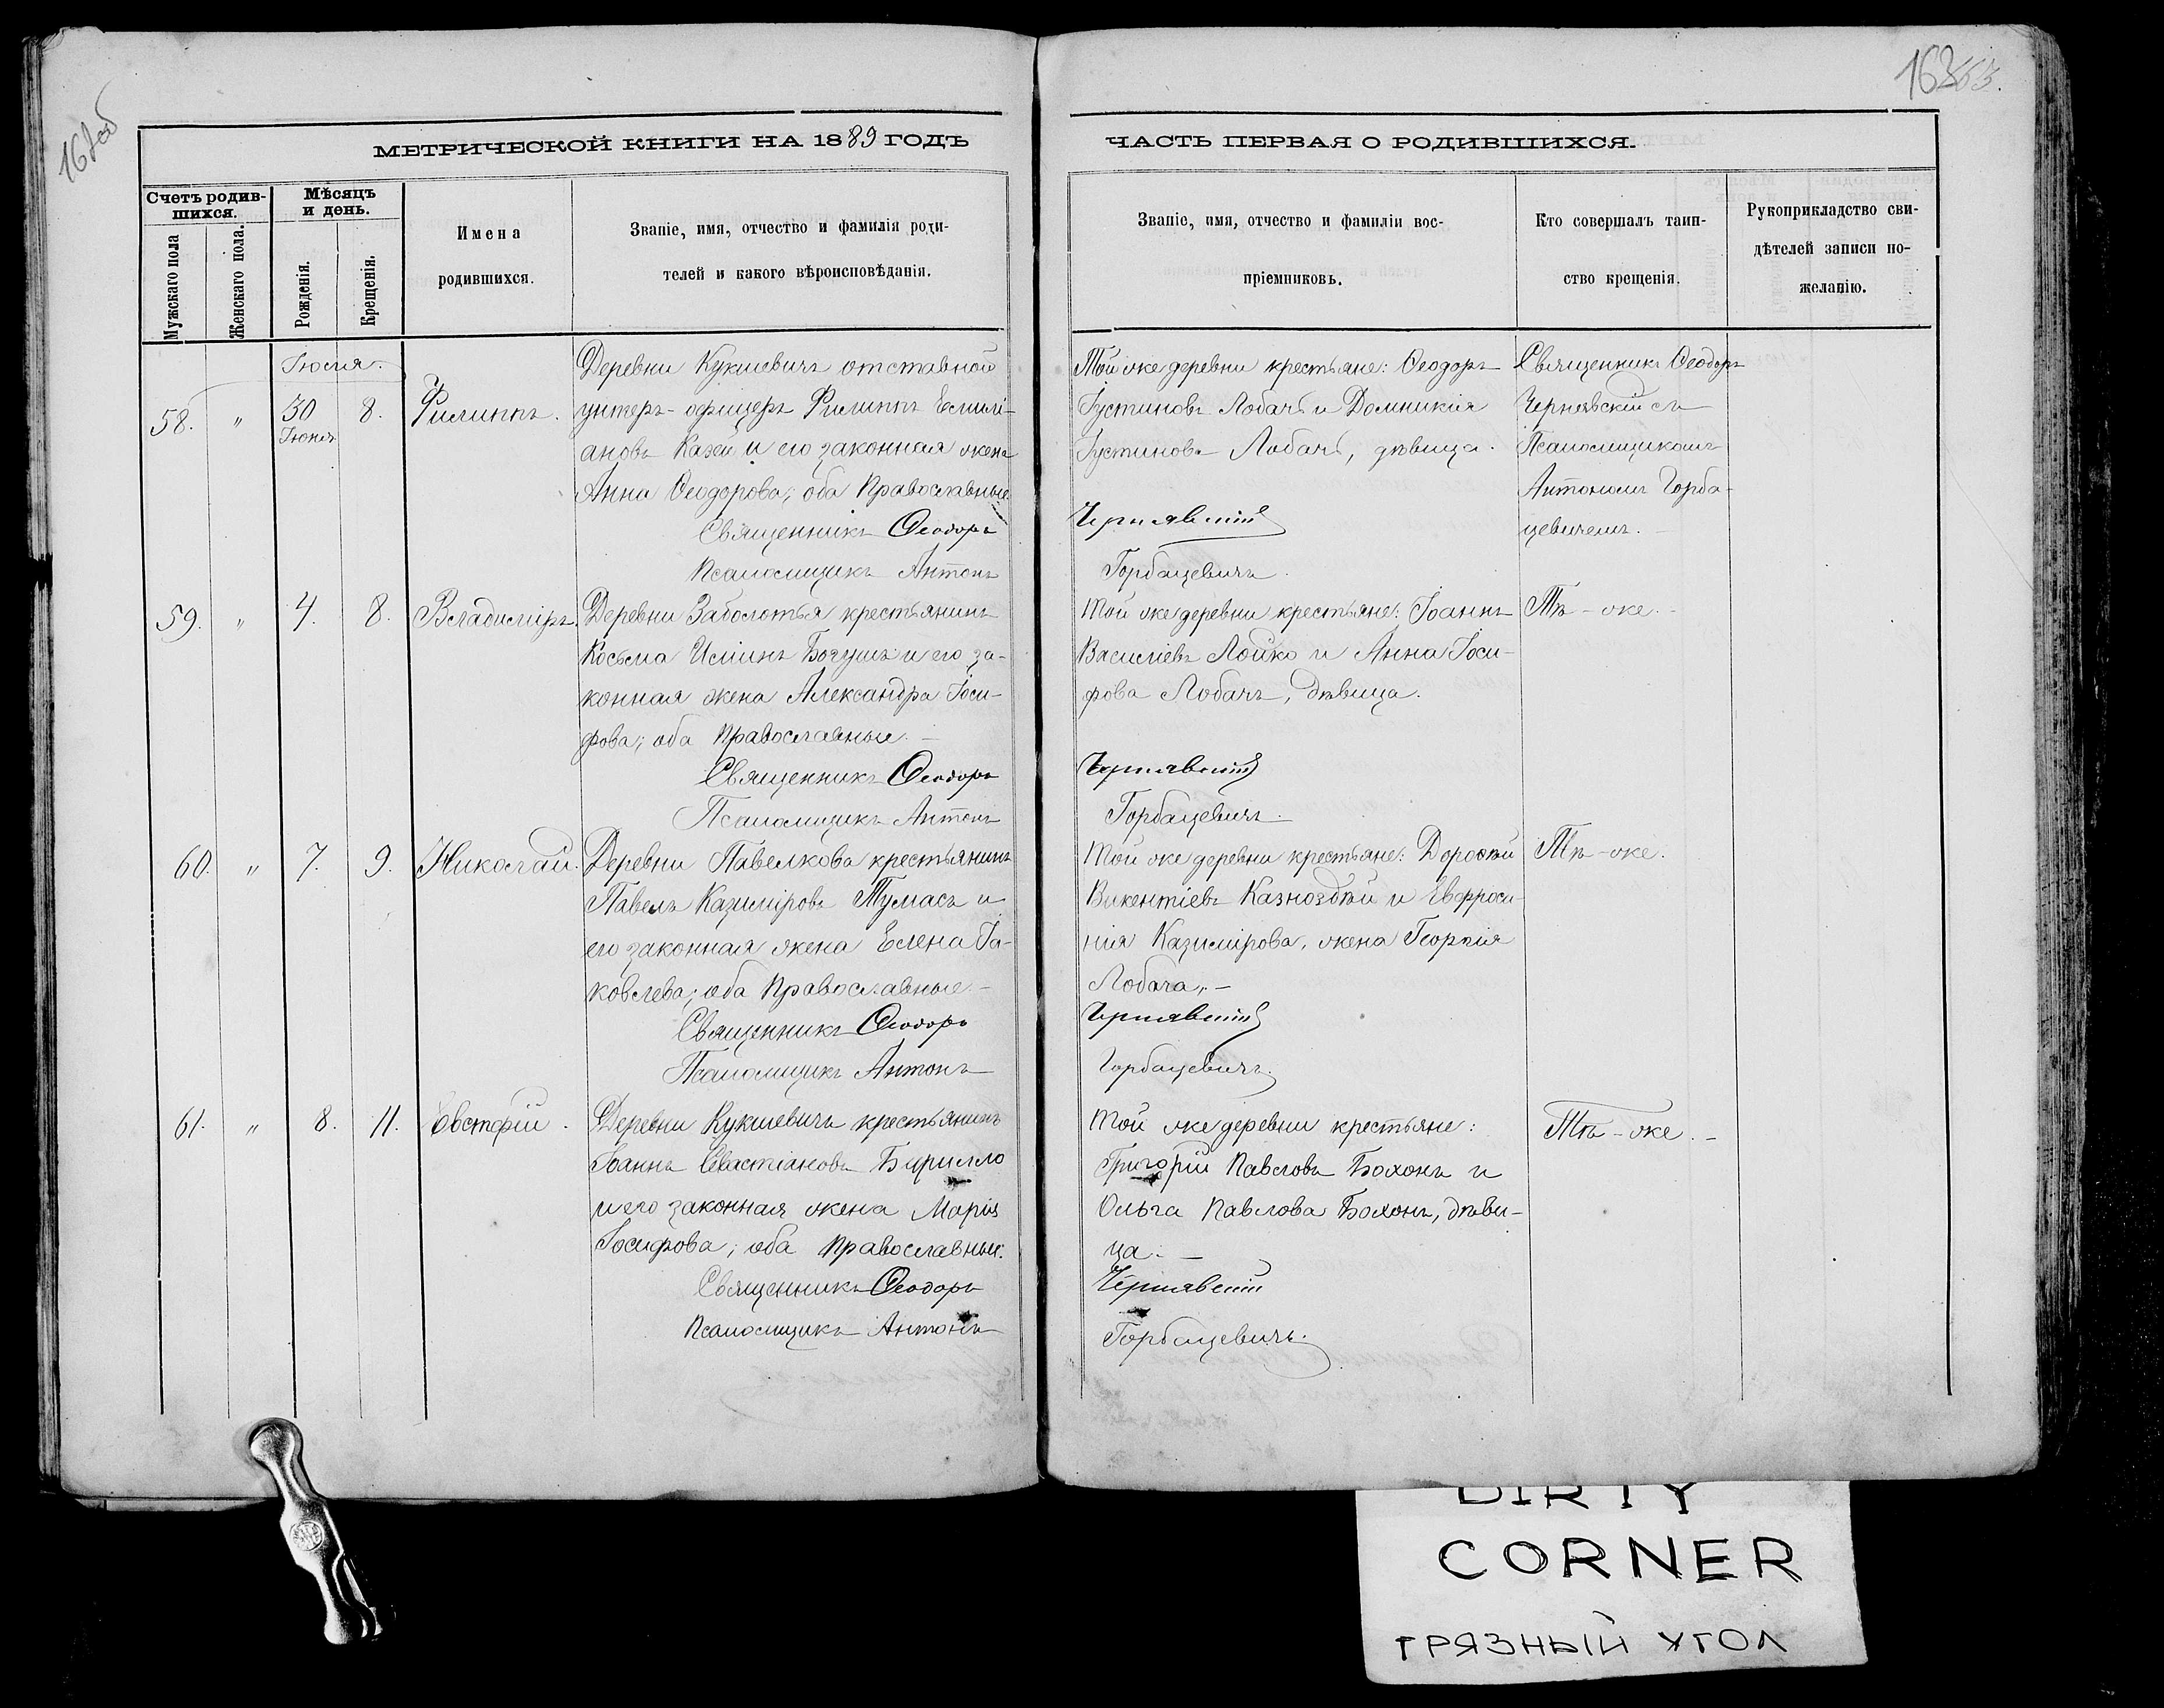 162об
163.
МЕТРИЧЕСКОЙ КНИГИ НА 1889 ГОДЪ
ЧАСТЬ ПЕРВАЯ О РОДИВШИХСЯ.
Счетъ родив-
шихся.
Мужскаго пола
Женскаго пола.
Мѣсяцъ
и день.
Рожденія.
Крещенія.
Имена
родившихся.
Званіе, имя, отчество и фамилія роди-
телей и какого вѣроисповѣданія.
Званіе, имя, отчество и фамиліи вос-
пріемниковъ.
Кто совершалъ таин-
ство крещенія.
Рукоприкладство сви-
дѣтелей записи по-
желанію.
Іюля.
58.
"
30
Іюня
8.
Филиппъ.
Деревни Кукшевичъ отставной
унтеръ-офицеръ Филиппъ Емилі-
ановъ Казей и его законная жена
Анна Ѳеодорова; оба Православные
Священникъ Ѳеодоръ
Псаломщикъ Антонъ
Той же деревни крестьяне: Ѳеодоръ
Іустиновъ Лобачъ и Домникія
Іустинова Лобачъ, дѣвица.
Чернявскій
Горбацевичъ.
Священникъ Ѳеодоръ
Чернявскій съ
Псаломщикомъ
Антономъ Горба-
цевичемъ.
59.
"
4.
8.
Владиміръ.
Деревни Заболотья крестьянинъ
Косьма Ильинъ Богушъ и его за-
конная жена Александра Іоси-
фова; оба Православные.
Священникъ Ѳеодоръ
Псаломщикъ Антонъ
Той же деревни крестьяне: Іоаннъ
Василіевъ Лойко и Анна Іоси-
фова Лобачъ, дѣвица.
Чернявскій
Горбацевичъ.
Тѣ-же.
60.
"
7.
9.
Николай.
Деревни Павелкова крестьянинъ
Павелъ Казиміровъ Тумасъ и
его законная жена Елена Іа-
ковлева; оба Православные.
Священникъ Ѳеодоръ
Псаломщикъ Антонъ
Той же деревни крестьяне: Дороѳей
Викентіевъ Казноздѣй и Евфроси-
нія Казимірова, жена Георгія
Лобача.
Чернявскій
Горбацевичъ.
Тѣ-же.
61.
"
8.
11.
Евстафій.
Деревни Кукшевичъ крестьянинъ
Іоаннъ Севастіановъ Бирилло
и его законная жена Марія
Іосифова; оба Православные.
Священникъ Ѳеодоръ
Псаломщикъ Антонъ
Той же деревни крестьяне:
Григорій Павловъ Бохонъ и
Ольга Павлова Бохонъ, дѣви-
ца.
Чернявскій
Горбацевичъ.
Тѣ-же.
DIRTY
CORNER
ГРЯЗНЫЙ УГОЛ